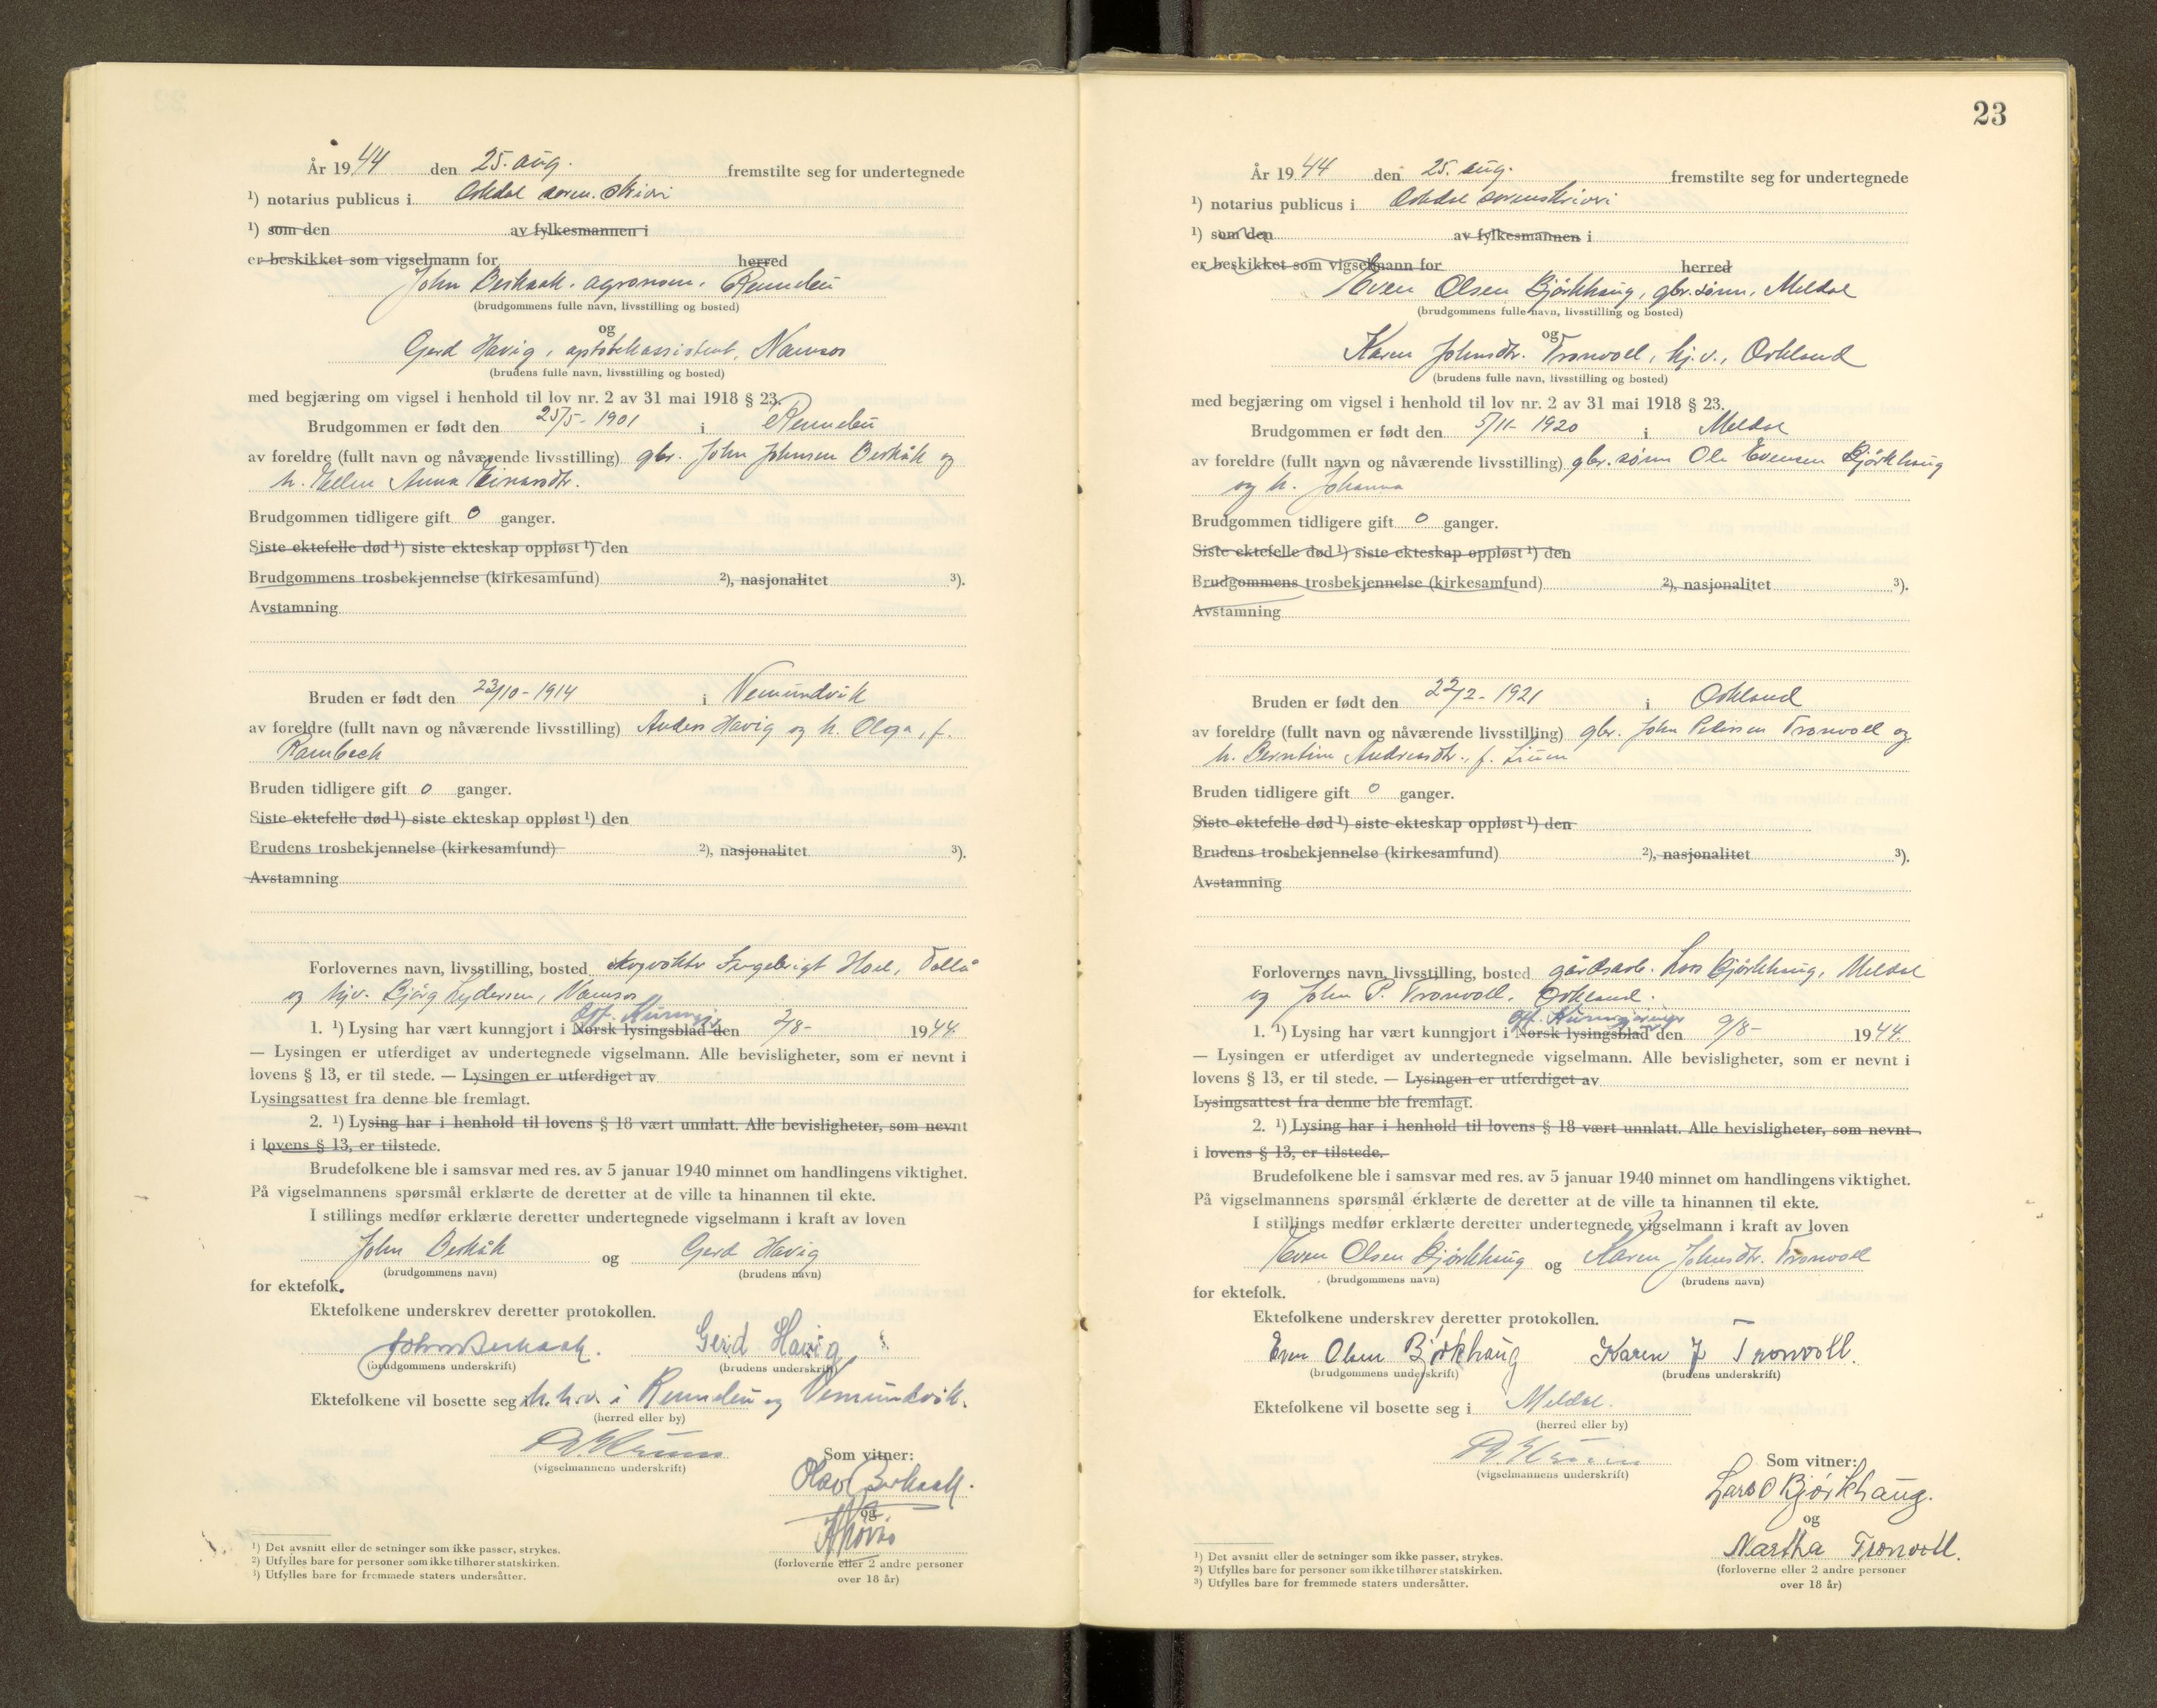 År 1944 den 25. aug. fremstilte seg for undertegnede
¹) notarius publicus i Orkdal soren.skriveri
¹) som den av fylkesmannen i
er beskikket som vigselmann for herred
John Berkaak. agronom. Rennebu
(brudgommens fulle navn, livsstilling og bosted)
og
Gerd Havig, apotekassistent, Namsos
(brudens fulle navn, livsstilling og bosted)
med begjæring om vigsel i henhold til lov nr. 2 av 31 mai 1918 § 23.
Brudgommen er født den 25/5- 1901 i Rennebu
av foreldre (fullt navn og nåværende livsstilling) gbr. John Johnsen Berkåk og
h. Ellen Anna Einarsdtr.
Brudgommen tidligere gift 0 ganger.
Siste ektefelle død ¹) siste ekteskap oppløst ¹) den
Brudgommens trosbekjennelse (kirkesamfund) ²), nasjonalitet ³).
Avstamning
Bruden er født den 23/10-1914 i Vemundvik
av foreldre (fullt navn og nåværende livsstilling) Anders Havig og h. Olga, f.
Rambech
Bruden tidligere gift 0 ganger.
Siste ektefelle død ¹) siste ekteskap oppløst ¹) den
Brudens trosbekjennelse (kirkesamfund) ²), nasjonalitet ³).
Avstamning
Forlovernes navn, livsstilling, bosted skogvokter Ingebrigt Hoel,
og hjv. Bjørg Lydersen, Namsos
1. ¹) Lysing har vært kunngjort i Norsk lysingsblad den 2/8- 1944.
— Lysingen er utferdiget av undertegnede vigselmann. Alle bevisligheter, som er nevnt i
lovens § 13, er til stede. — Lysingen er utferdiget av
Lysingsattest fra denne ble fremlagt.
2. ¹) Lysing har i henhold til lovens § 18 vært unnlatt. Alle bevisligheter, som nevnt
i lovens § 13, er tilstede.
Brudefolkene ble i samsvar med res. av 5 januar 1940 minnet om handlingens viktighet.
På vigselmannens spørsmål erklærte de deretter at de ville ta hinannen til ekte.
I stillings medfør erklærte deretter undertegnede vigselmann i kraft av loven
John Berkåk og Gerd Havig
(brudgommens navn) (brudens navn)
for ektefolk.
Ektefolkene underskrev deretter protokollen.
John Berkaak. Gerd Havig
(brudgommens underskrift) (brudens underskrift)
Ektefolkene vil bosette seg i h.h.v. i Rennebu og Vemundvik.
(herred eller by)
(vigselmannens underskrift)
Som vitner:
Olav Berkaak.
og
(forloverne eller 2 andre personer
over 18 år)
¹) Det avsnitt eller de setninger som ikke passer, strykes.
²) Utfylles bare for personer som ikke tilhører statskirken.
³) Utfylles bare for fremmede staters undersåtter.
23
År 1944 den 25. aug. fremstilte seg for undertegnede
¹) notarius publicus i Orkdal sorenskriveri
¹) som den av fylkesmannen i
er beskikket som vigselmann for herred
Even Olsen Bjørkhaug, gbr.sønn, Meldal
(brudgommens fulle navn, livsstilling og bosted)
og
Karen Johnsdtr. Tronvoll, hj.v., Orkland
(brudens fulle navn, livsstilling og bosted)
med begjæring om vigsel i henhold til lov nr. 2 av 31 mai 1918 § 23.
Brudgommen er født den 5/11- 1920 i Meldal
av foreldre (fullt navn og nåværende livsstilling) gbr. sønn Ole Evensen Bjørkhaug
og h. Johanna
Brudgommen tidligere gift 0 ganger.
Siste ektefelle død ¹) siste ekteskap oppløst ¹) den
Brudgommens trosbekjennelse (kirkesamfund) ²), nasjonalitet ³).
Avstamning
Bruden er født den 22/2- 1921 i Orkland
av foreldre (fullt navn og nåværende livsstilling) gbr. John Petersen Tronvoll og
h. Berntine Andreasdtr., f.
Bruden tidligere gift 0 ganger.
Siste ektefelle død ¹) siste ekteskap oppløst ¹) den
Brudens trosbekjennelse (kirkesamfund) ²), nasjonalitet ³).
Avstamning
Forlovernes navn, livsstilling, bosted gårdsarb. Lars Bjørkhaug, Meldal
og John P. Tronvoll. Orkland.
off. Kunngjøringer
1. ¹) Lysing har vært kunngjort i Norsk lysingsblad den 9/8- 1944.
— Lysingen er utferdiget av undertegnede vigselmann. Alle bevisligheter, som er nevnt i
lovens § 13, er til stede. — Lysingen er utferdiget av
Lysingsattest fra denne ble fremlagt.
2. ¹) Lysing har i henhold til lovens § 18 vært unnlatt. Alle bevisligheter, som nevnt
i lovens § 13, er tilstede.
Brudefolkene ble i samsvar med res. av 5 januar 1940 minnet om handlingens viktighet.
På vigselmannens spørsmål erklærte de deretter at de ville ta hinannen til ekte.
I stillings medfør erklærte deretter undertegnede vigselmann i kraft av loven
Even Olsen Bjørkhaug og Karen Johnsdtr. Tronvoll
(brudgommens navn) (brudens navn)
for ektefolk.
Ektefolkene underskrev deretter protokollen.
Even Olsen Bjørkhaug Karen J Tronvoll.
(brudgommens underskrift) (brudens underskrift)
Ektefolkene vil bosette seg i Meldal.
(herred eller by)
(vigselmannens underskrift)
Som vitner:
Lars O Bjørkhaug.
og
Martha Tronvoll.
(forloverne eller 2 andre personer
over 18 år)
¹) Det avsnitt eller de setninger som ikke passer, strykes.
²) Utfylles bare for personer som ikke tilhører statskirken.
³) Utfylles bare for fremmede staters undersåtter.